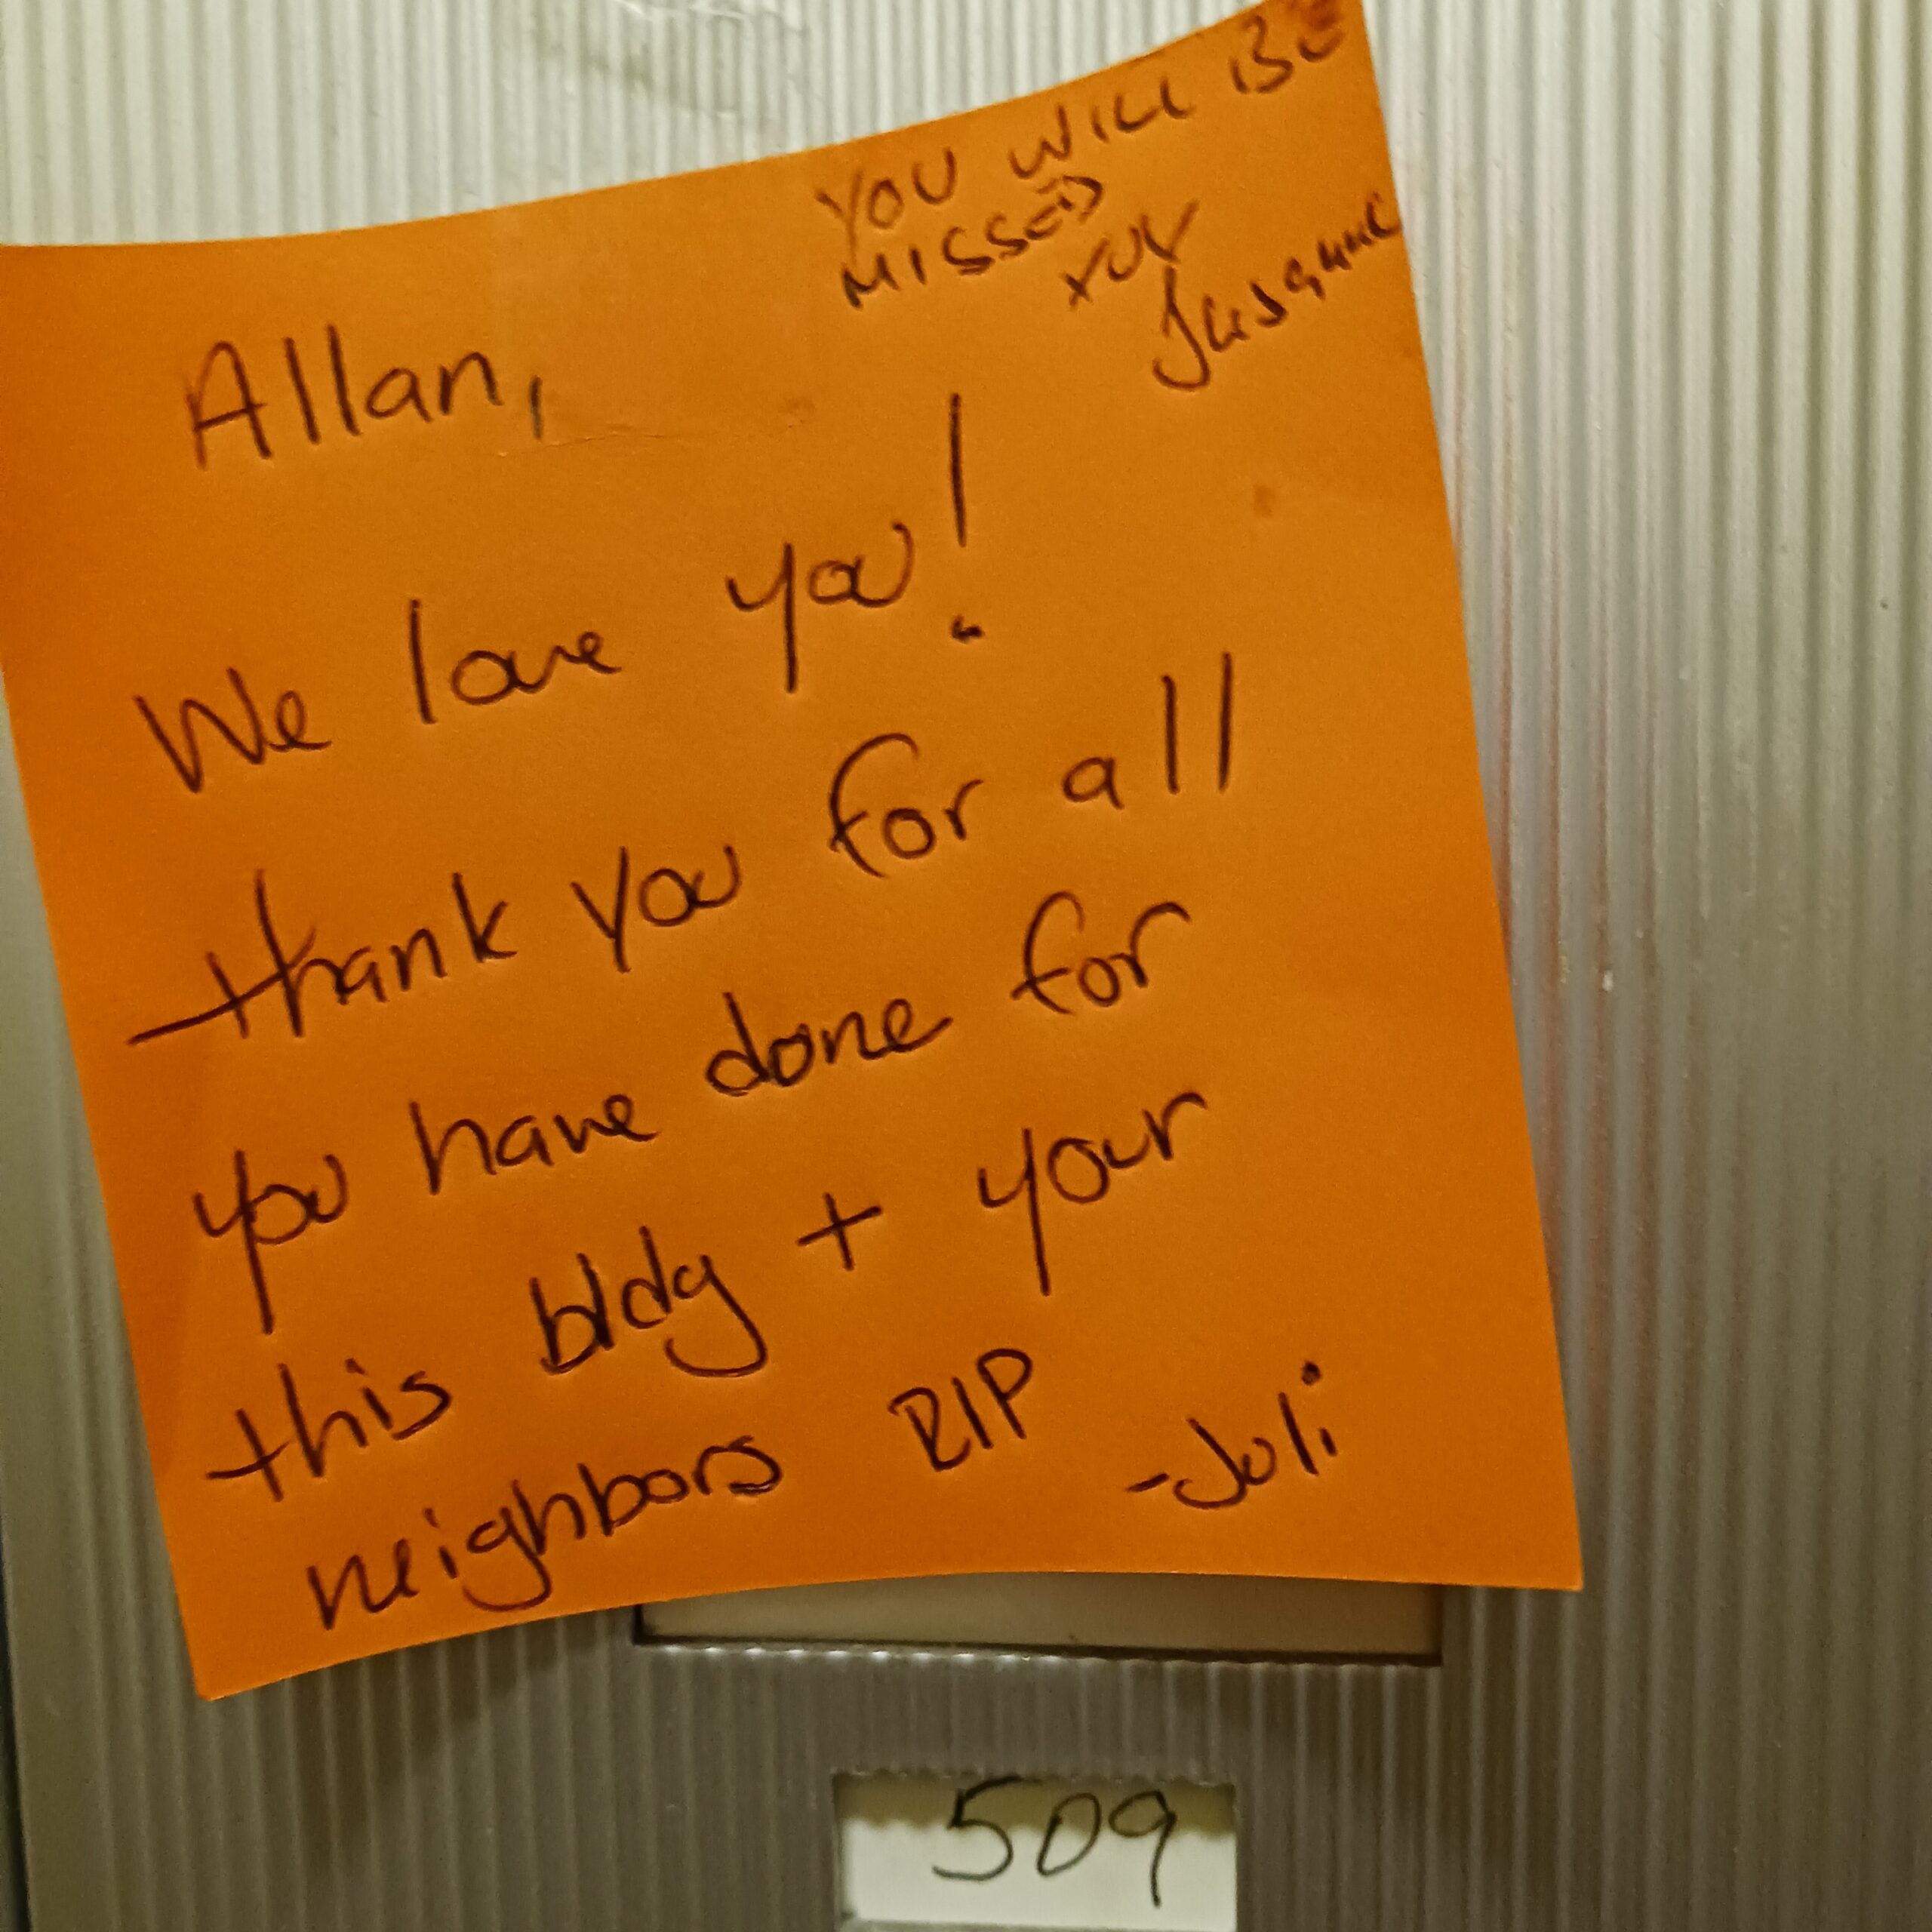 YOU WILL BE
MISSED
Allan,
We love you!
thank you for all
you have done for
this bldg + your
neighbors RIP
-Juli
509